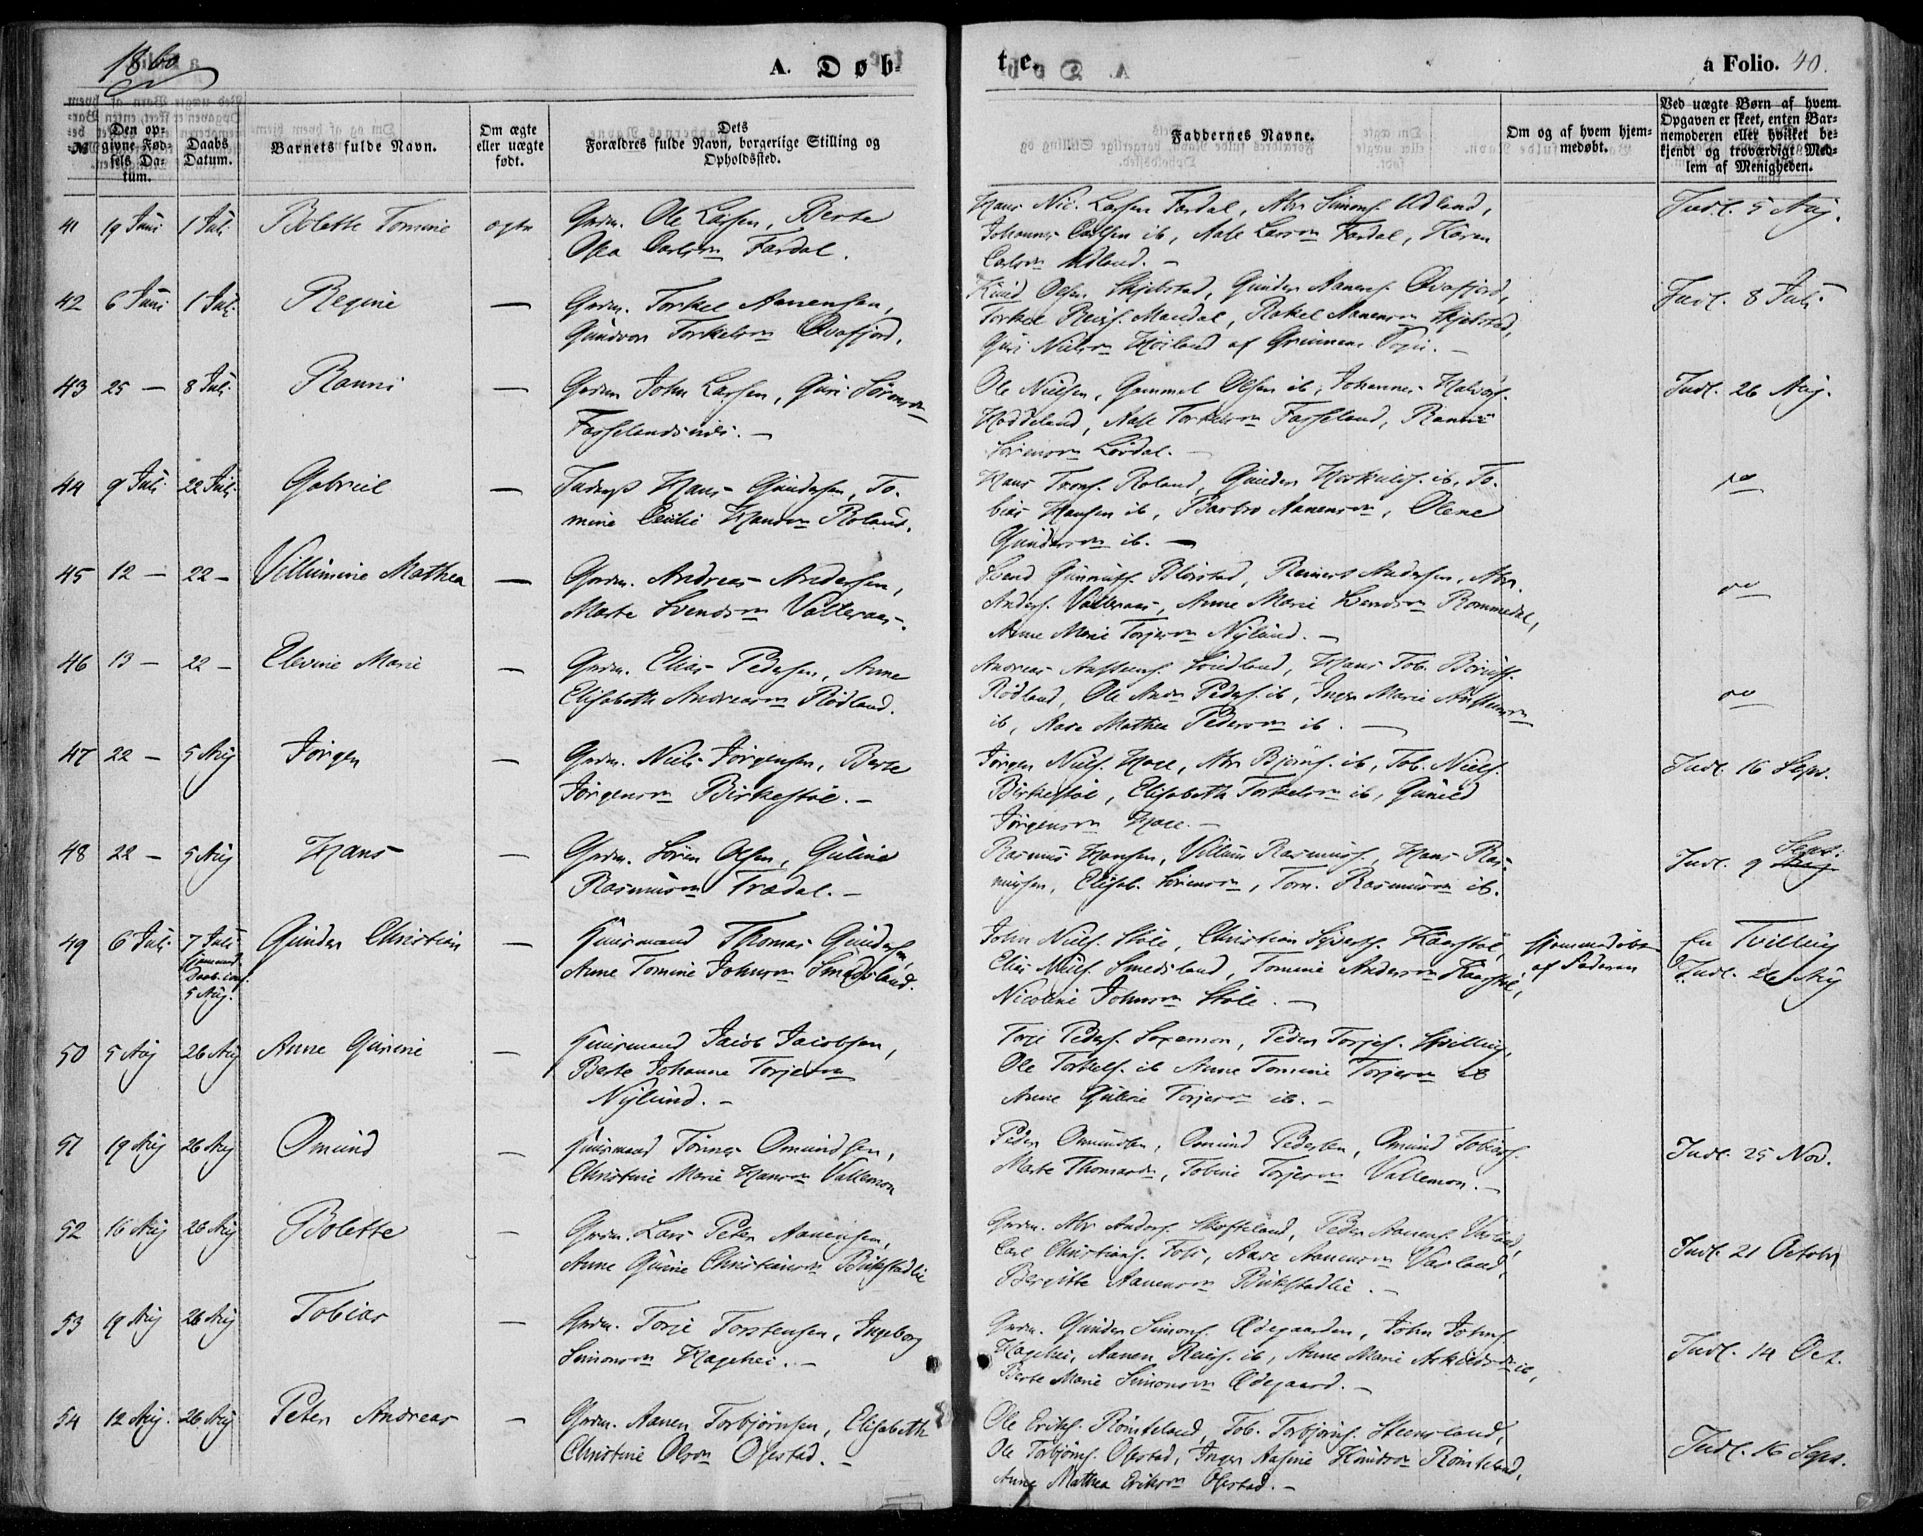 1860
A. Døb-
te.
a Folio. 40.
№
Den opgivne Fødsels Datum.
Daabs Datum.
Barnets fulde Navn.
Om ægte eller uægte født.
Dets Forældres fulde Navn, borgerlige Stilling og Opholdssted.
Faddernes Navne.
Om og af hvem hjemmedøbt.
Ved uægte Børn af hvem Opgaven er skeet, enten Barnemoderen eller hvilket bekjendt og troværdigt Medlem af Menigheden.
41 19 Juni 1 Juli Bolette Tomine ægte Grdm. Ole Larsen, Berte
Carlsn Fardal.
Hans Nic. Larsen Fardal, Abr Simons. Udland,
Johannes Carlsen ib, Aase Larsn Fardal, Karen
Carlsn Udland. -
Indl. 5 Aug.
42 6 Juni 1 Juli Regine — Grdm. Torkel Aanensen,
Gundvor Torkelsn Qvafjord.
Knud Olsen Skjelstad, Gunder Aanens. Qvafjord,
Torkel Reiers. Mandal, Rakel Aanensn Skjelstad,
Guri Nielsn Høiland af
Indl. 8 Juli
43 25 — 8 Juli Ranni — Grdm John Larsen, Guri Sørensn
Ole Nielsen, Gammel Olsen ib, Johannes Halvors.
Aase Torkelsn Fasseland, Ranni
Sørensn
Indl. 26 Aug.
44 9 Juli 22 Juli Gabriel — Hans Gundersen, To-
mine Cecilie Hansn Roland.
Hans Trons. Roland, Gunder ib, To-
bias Hansen ib, Barbro Aanensn, Olene
Gundersn ib. —
do
45 12 — 22 — Villumine Mathea — Grdm. Andreas Andersen,
Marte Svendsn Valteraas.
Svend Reinert Andersen, Abr.
Anders. Valteraas, Anne Marie Svendsn Rommedal,
Anne Marie Torjersn Nylund. -
do
46 13 — 22 — Elevine Marie — Grdm. Elias Pedersen, Anne
Elisabeth Andreasn Rødland.
Andreas Hans Tob.
Rødland, Ole Andr Peders. ib, Inger Marie
ib, Aase Mathea Pedersn ib. —
do
47 22 — 5 Aug Jørgen — Grdm. Niels Jørgensen, Berte
Jørgensn Birkestøl. -
Jørgen Niels. Abr Bjørns. ib, Tob. Niels.
Birkestøl, Elisabeth Torkelsn ib, Gunild
Jørgensn
Indl. 16 Sept.
48 22 — 5 Aug Hans — Grdm. Søren Olsen, Guline
Rasmusn Trædal. -
Rasmus Hansen, Villum Rasmus., Hans Ras-
musen, Elisab. Sørensn, Tom. Rasmusn ib.
Indl. 9 Sept.
49 6 Juli 7 Juli Gunder Christian — Huusmand Thomas Gunders.
5 Aug.
Anne Tomine Johnsn Smedsland.
John Niels. Støle, Christian Siverts. Kaarstøl,
Elias Niels. Smedsland, Tomine Andersn Kaarstøl,
Nicoline Johnsn Støle. —
hjemmedøbt
af Faderen
En Tvilling
Indl. 26 Aug
50 5 Aug 26 Aug Anne Gurine — Huusmand Jacob Jacobsen,
Berte Johanne Torjersn
Nylund. -
Torje Peders. Peder Torjes.
Ole Torkels. ib Anne Tomine Torjersn ib
Anne Guline Torjersn ib. -
51 19 Aug 26 Aug Omund — Huusmand Tønnes Omundsen,
Christine Marie Hansn Vallemon
Peder Omundsen, Omund Pedersen, Omund Tobias.
Marte Thomasn, Tobine Torjersn Vallemon. -
Indl. 25 Nov.
52 16 Aug 26 Aug Bolette — Grdm. Lars Peter Aanensen,
Anne Gurine Christiansn
Grdm. Abr Anders. Skofteland, Peder Aanens.
Carl Christians. Aase Aanensn Varland,
Bergitte Aanensn
Indl. 21 October
53 19 Aug 26 Aug Tobias — Grdm. Torje Torstensen, Ingeborg
Simonsn Hagehei. -
Grdm. Gunder Simons. Ødegaarden, John Johns.
Hagehei, Aanen Reiers. ib, Anne Marie ib,
Berte Marie Simonsn Ødegaard. -
Indl. 14 Oct.
54 12 Aug. 26 Aug Peter Andreas — Grdm. Aanen Torbjørnsen, Elisabeth
Christine Olsn Ofestad. -
Ole Eriks. Rømteland, Tob. Torbjørns.
Ole Torbjørns. Ofestad, Inger Aasine Knudsn Rømteland,
Anne Mathea Eriksn Ofestad. -
Indl. 16 Sept.